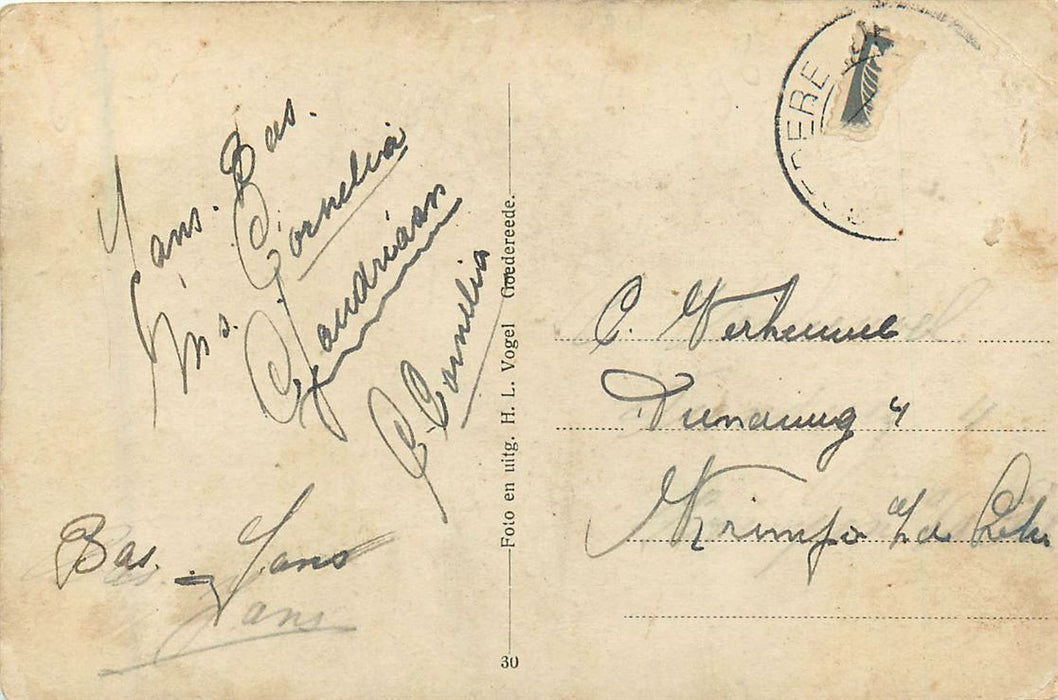 Jans. Bas.
Ms. Cornelia
Gandriaan
C. Cornelia
Bas. Jans
Jans
Foto en uitg. H. L. Vogel Goedereede.
30
DERE
C.
4
Krimp a/d Lek